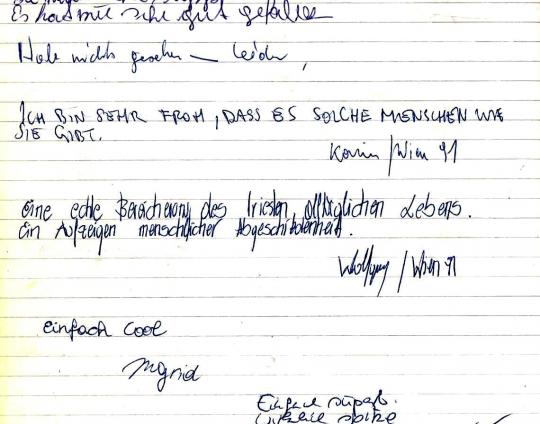 Es hat mir sehr gut gefallen
Habe nichts gesehen — leider,
ICH BIN SEHR FROH, DASS ES SOLCHE MENSCHEN WIE
SIE GIBT.
Karin / Wien 91
eine echte Bereicherung des tristen, alltäglichen Lebens.
Ein Aufzeigen menschlicher Abgeschiedenheit.
Wolfgang / Wien 91
einfach cool
Ingrid
Einfach super.